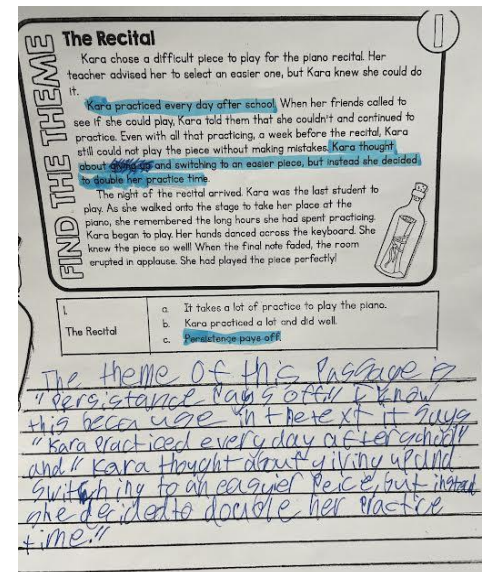 1
FIND THE THEME
The Recital
Kara chose a difficult piece to play for the piano recital. Her
teacher advised her to select an easier one, but Kara knew she could do
it.
Kara practiced every day after school. When her friends called to
see if she could play, Kara told them that she couldn't and continued to
practice. Even with all that practicing, a week before the recital, Kara
still could not play the piece without making mistakes. Kara thought
about giving up and switching to an easier piece, but instead she decided
to double her practice time.
The night of the recital arrived. Kara was the last student to
play. As she walked onto the stage to take her place at the
piano, she remembered the long hours she had spent practicing.
Kara began to play. Her hands danced across the keyboard. She
knew the piece so well! When the final note faded, the room
erupted in applause. She had played the piece perfectly!
1.
The Recital
a. It takes a lot of practice to play the piano.
b. Kara practiced a lot and did well.
c. Persistence pays off.
The theme Of this Passage is
"Persistance Pays off." I know
this because in the text it says
"Kara Practiced every day afterschool"
and "Kara thought about giving up and
Switching to an easyier Peice, but instead
she decided to double her Practice
time."